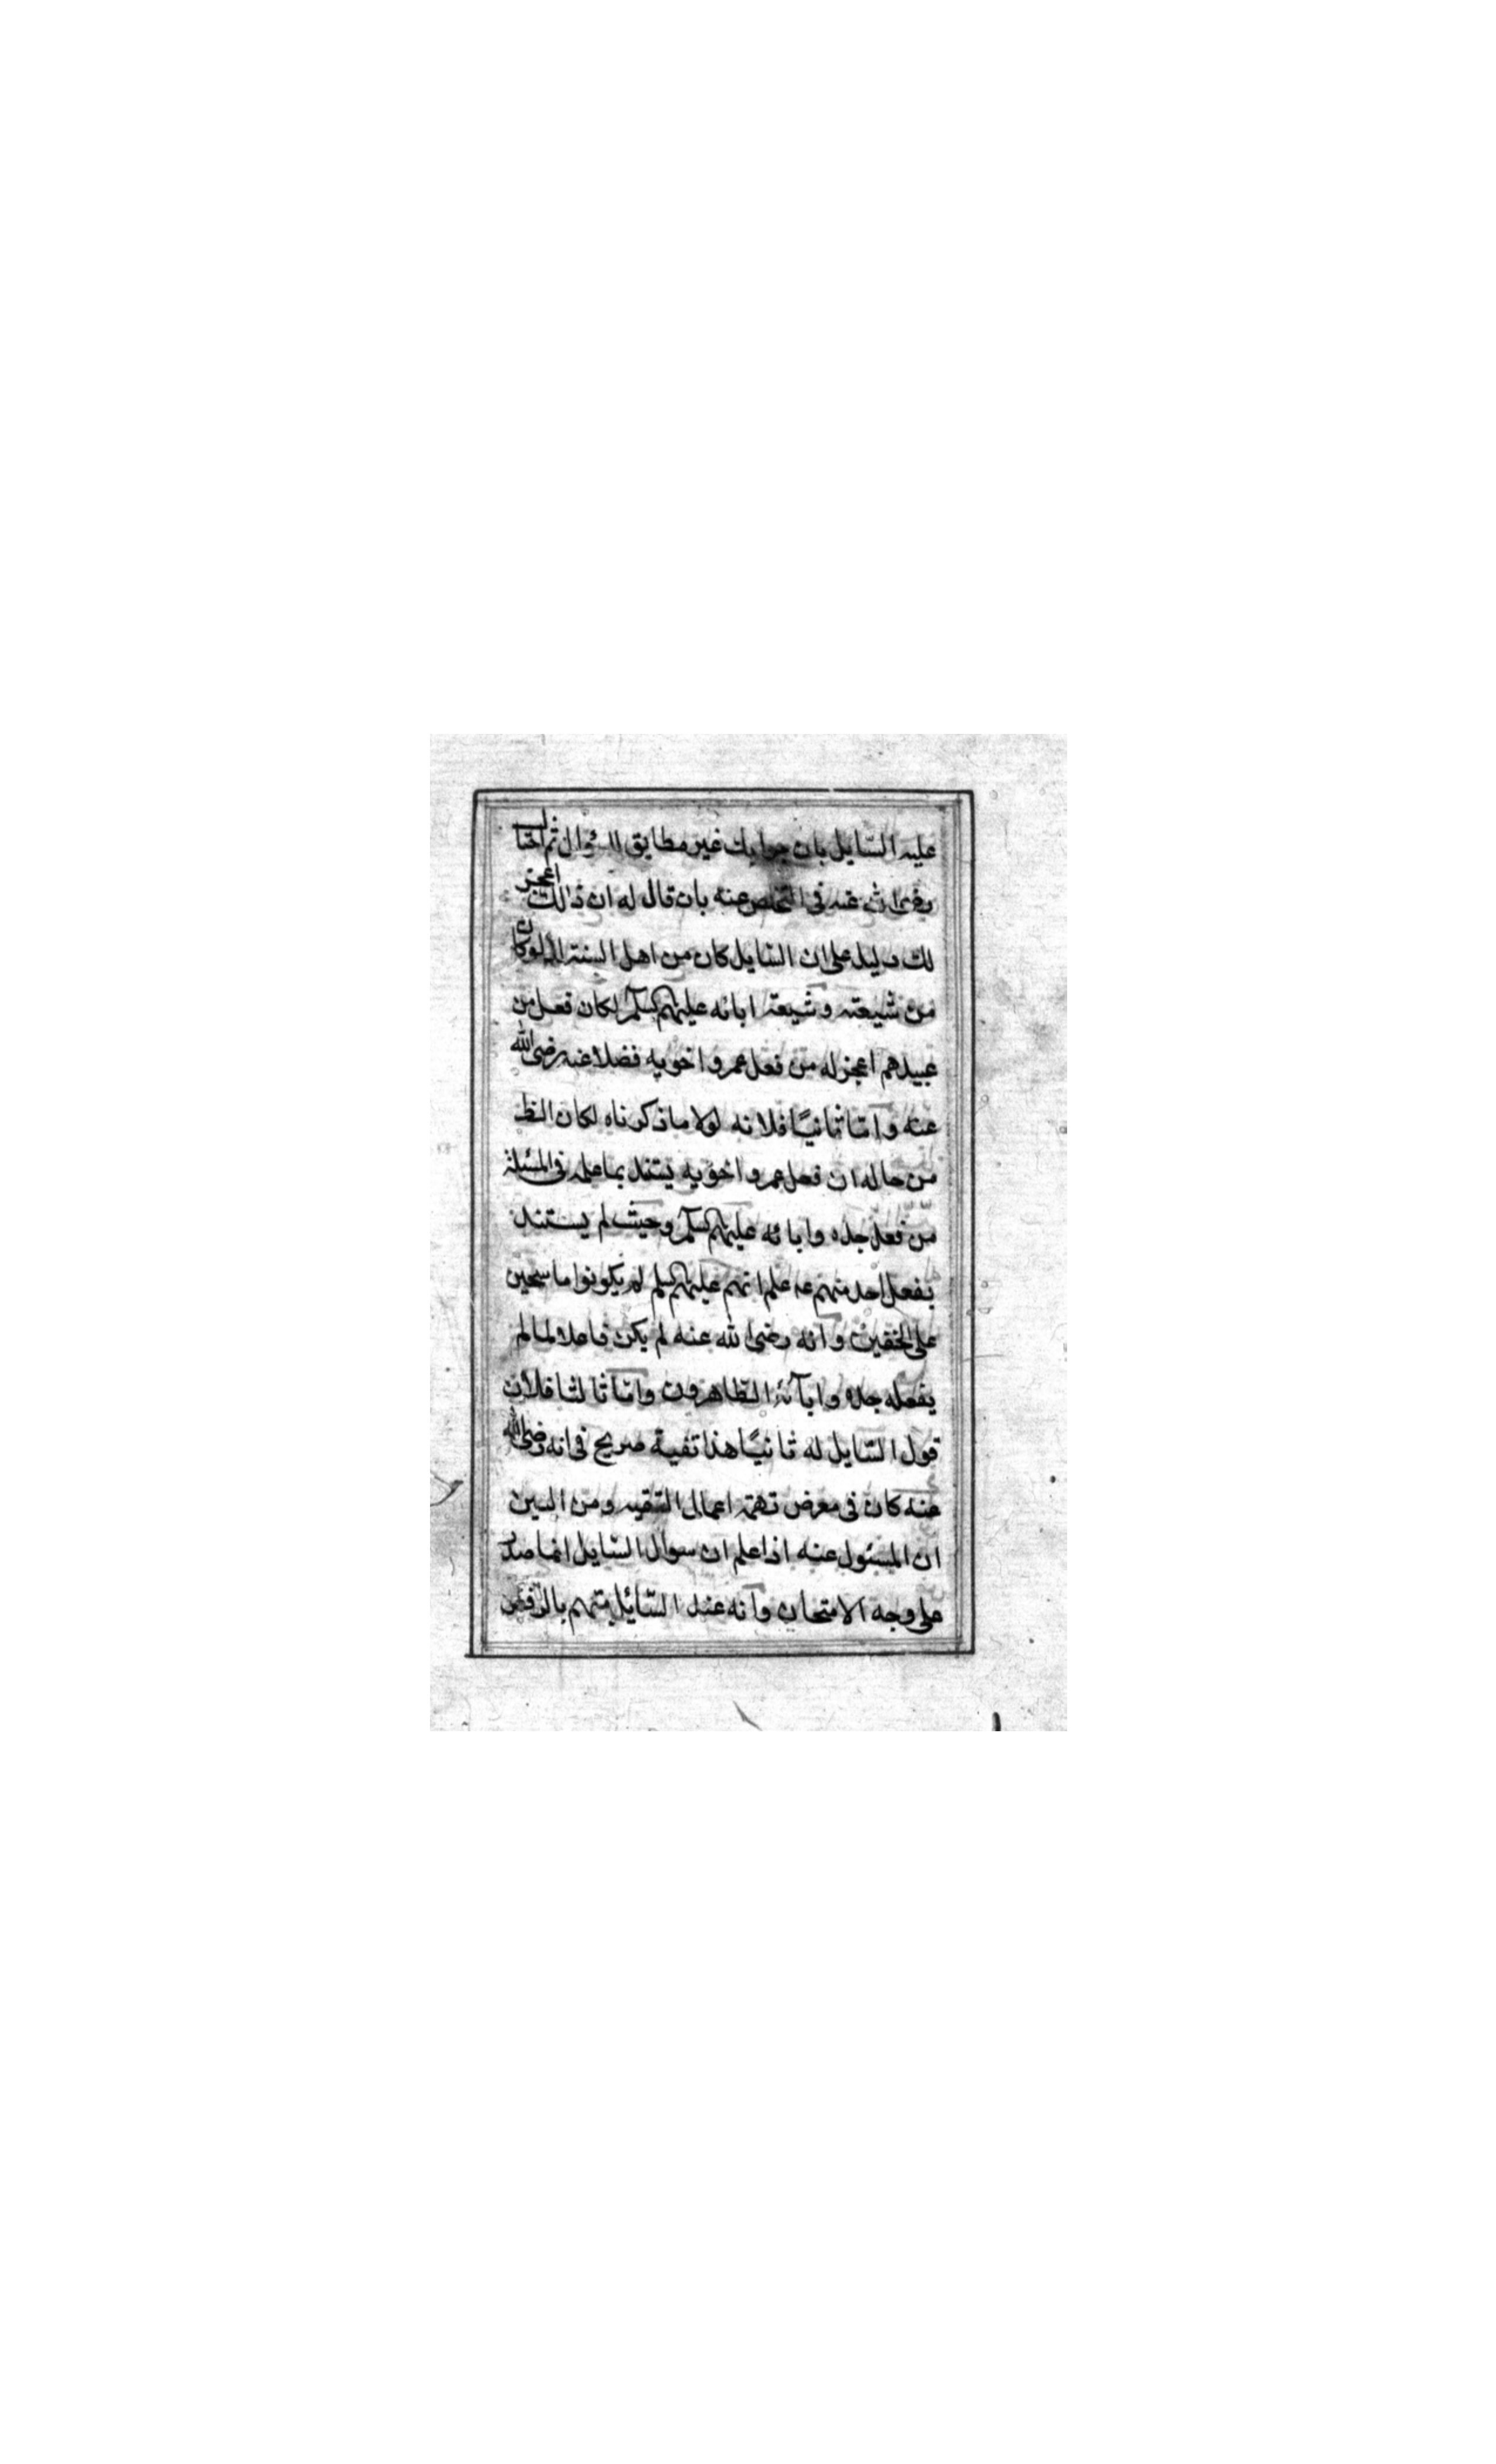 عليه السّايل بان جوابك غير مطابق للسؤال ثم احتال
رضى الله عنه فى التخلص عنه بان قال له ان ذلك اعجز
لك دليل على ان السّايل كان من اهل السنة اذ لو كان
من شيعته وشيعة ابائه عليهم السلم لكان فعل من
عبيدهم اعجز له من فعل عمر واخويه فضلا عنه رضى الله
عنه وامّا ثانيًا فلانه لولا ماذكرناه لكان الظ
من حاله ان فعل عمر واخويه يستند بما علمه فى المسئلة
من فعل جده وابائه عليهم السلم وحيث لم يستند
بفعل احد منهم عه علم انهم عليهم السلم لم يكونوا ماسحين
على الخفين وانه رضى الله عنه لم يكن فاعلا لما لم
يفعله جده وابآئه الطّاهرون وامّا ثالثا فلان
قول السّايل له ثانيًا هذا تقية صريح فى انه رضى الله
عنه كان فى معرض تهمة اعمال التقيه ومن البين
ان المسئول عنه اذا علم ان سوال السّايل انما صدر
على وجه الامتحان وانه عند السّائل متهم بالرّفض